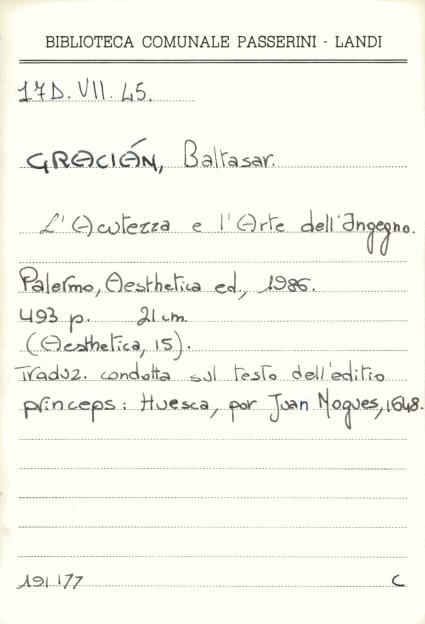 BIBLIOTECA COMUNALE PASSERINI - LANDI
17D. VII. 45.
GRACIÁN, Baltasar.
L'Acutezza e l'Arte dell'Ingegno.
Palermo, Aesthetica ed., 1986.
493 p. 21 cm.
(Aesthetica, 15).
Traduz. condotta sul testo dell'editio
princeps: Huesca, por Juan Nogues, 1648.
191177 C